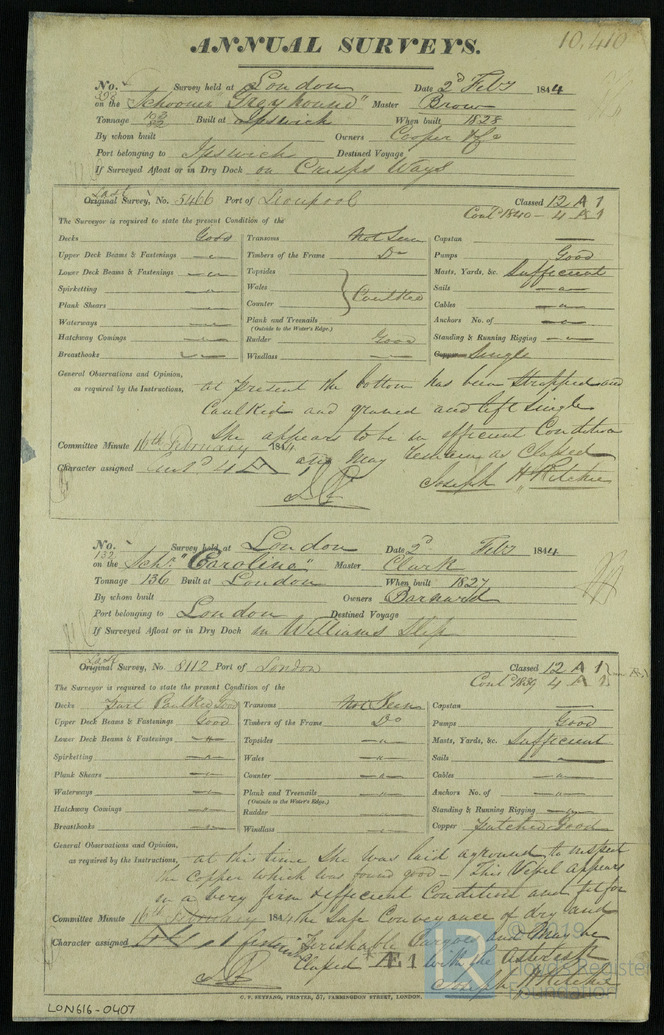 10,410
ANNUAL SURVEYS.
No. 393 Survey held at London Date 2d Feby 1844
on the Schooner "Greyhound" Master Brow
Tonnage Built at Ipswich When built 1828
By whom built Owners Cooper & Co
Port belonging to Ipswich Destined Voyage
If Surveyed Afloat or in Dry Dock on Crisps Ways
Last
Original Survey, No. 5466 Port of Liverpool Classed 12 A 1
Contd 1840 - 4 A 1
The Surveyor is required to state the present Condition of the
Decks Good Transoms Not Seen Capstan
Upper Deck Beams & Fastenings Timbers of the Frame Do Pumps Good
Lower Deck Beams & Fastenings Topsides Masts, Yards, &c. Sufficient
Spirketting Wales Caulked Sails
Plank Shears Counter Cables
Waterways Plank and Treenails Anchors No. of
(Outside to the Water's Edge.)
Hatchway Comings Rudder Good Standing & Running Rigging
Breasthooks Windlass Copper Single
General Observations and Opinion,
as required by the Instructions, at present the bottom has been Strapped and
Caulked and graved and left single
She appears to be in efficient Condition
Committee Minute 16th February 1844 and May remain as Classed
Character assigned Contd 4 A 1 Joseph H Ritchie
No. 132 Survey held at London Date 2d Feby 1844
on the Schr "Caroline" Master Clark
Tonnage 136 Built at London When built 1827
By whom built Owners Barnard
Port belonging to London Destined Voyage
If Surveyed Afloat or in Dry Dock on Williams Slip
Last
Original Survey, No. 8112 Port of London Classed 12 A 1
Contd 1839 4 A 1
The Surveyor is required to state the present Condition of the
Decks Part Caulked Good Transoms Not Seen Capstan
Upper Deck Beams & Fastenings Good Timbers of the Frame Do Pumps Good
Lower Deck Beams & Fastenings Topsides Masts, Yards, &c. Sufficient
Spirketting Wales Sails
Plank Shears Counter Cables
Waterways Plank and Treenails Anchors No. of
(Outside to the Water's Edge.)
Hatchway Comings Rudder Standing & Running Rigging
Breasthooks Windlass Copper Patched Good
General Observations and Opinion,
as required by the Instructions, at this time She was laid aground to inspect
the Copper which was found good - This Vessel appears
in a very firm & efficient Condition and fit for
Committee Minute 16th February 1844 the Safe Conveyance of dry and
Character assigned Perishable Cargoes and May be
Classed *Æ 1 with the Asterisk
Joseph H Ritchie
C. F. SEYFANG, PRINTER, 57, FARRINGDON STREET, LONDON.
LON616-0407
© 2019
Lloyd's Register
Foundation